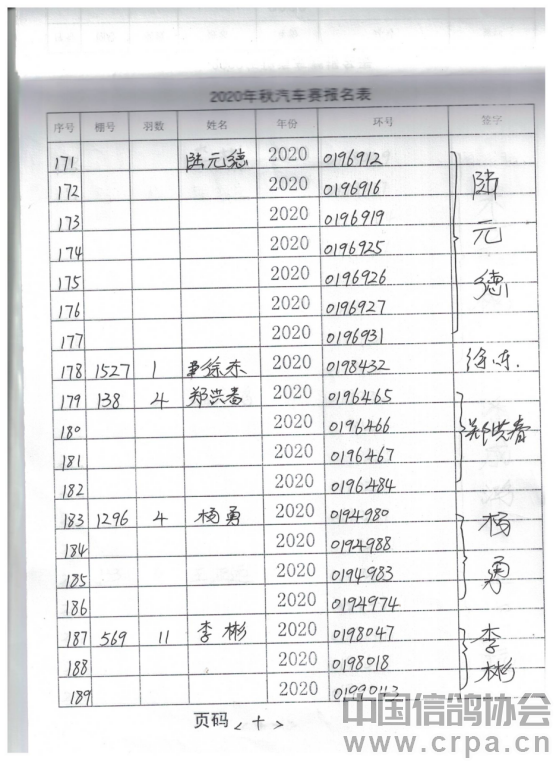 2020年秋汽车赛报名表
序号 棚号 羽数 姓名 年份 环号 签字
171 陆元德 2020 0196912 陆元德
172 2020 0196916
173 2020 0196919
174 2020 0196925
175 2020 0196926
176 2020 0196927
177 2020 0196931
178 1527 1 徐东 2020 0198432 徐东.
179 138 4 郑洪春 2020 0196465 郑洪春
180 2020 0196466
181 2020 0196467
182 2020 0196484
183 1296 4 杨勇 2020 0194980 杨勇
184 2020 0194988
185 2020 0194983
186 2020 0194974
187 569 11 李彬 2020 0198047 李彬
188 2020 0198018
189 2020
页码〈十〉
中国信鸽协会
www.crpa.cn